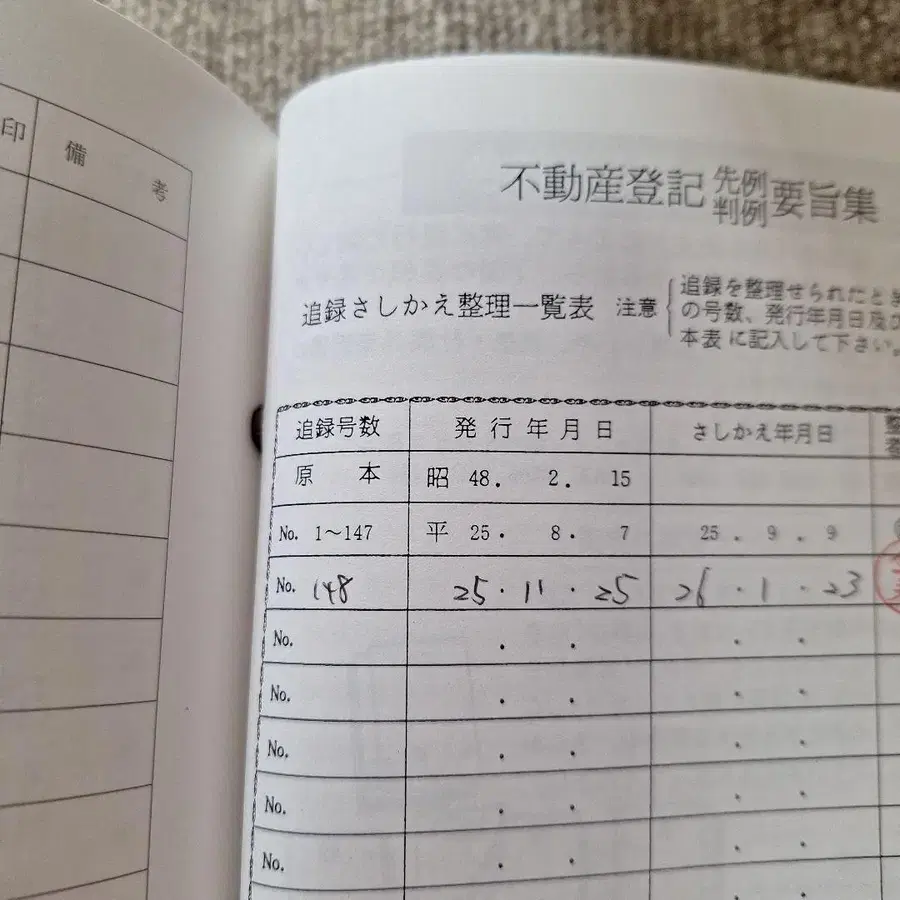 印 備考
不動産登記先例判例要旨集
追録さしかえ整理一覧表 注意
追録を整理せられたとき
の号数、発行年月日及び
本表に記入して下さい。
追録号数 発行年月日 さしかえ年月日 整
原本 昭 48. 2. 15
No. 1〜147 平 25. 8. 7 25. 9. 9
No. 148 25・11・25 26・1・23
No. . . . .
No. . . . .
No. . . . .
No. . . . .
No. . . . .